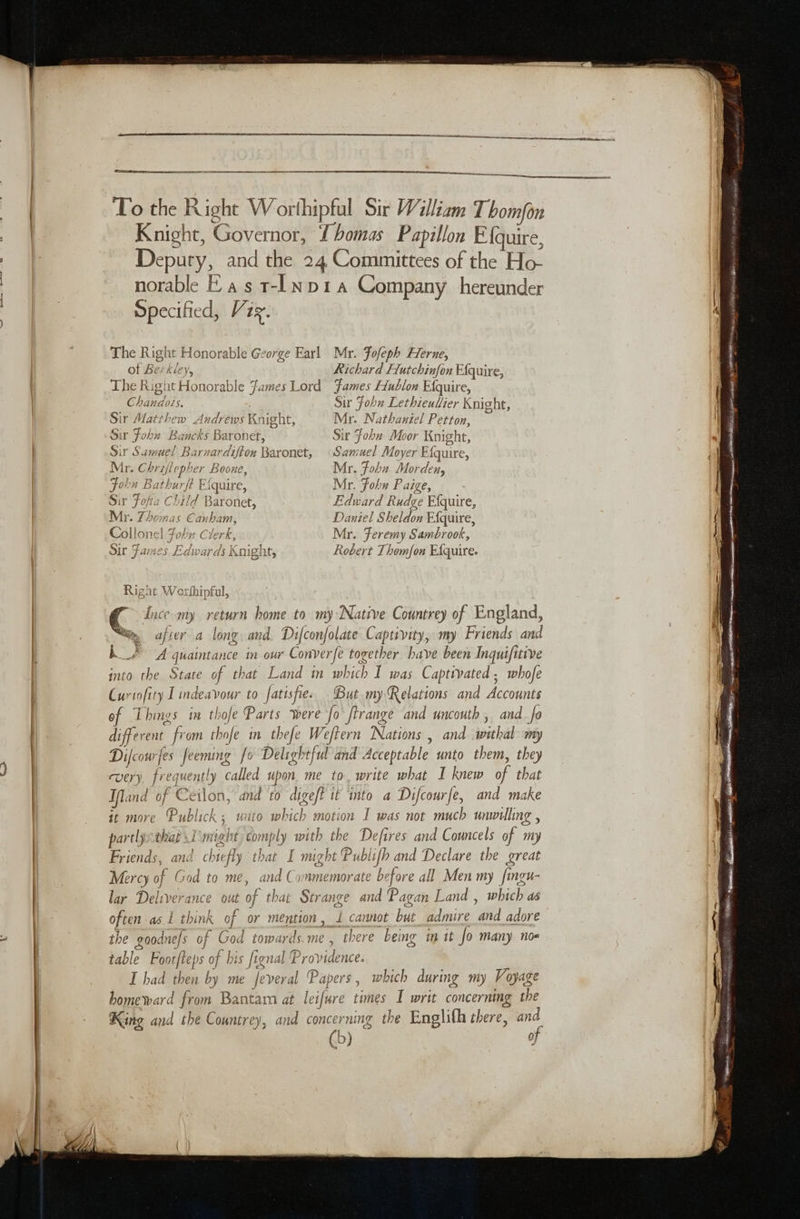 To the Right Worſhipful Sir William Thomſon
Knight, Governor, Thomas Papillon Eſquire,
Deputy, and the 24 Committees of the Ho-
norable East-India Company hereunder
Specified, Viz.
The Right Honorable George Earl
of Berkley,
The Right Honorable James Lord
Chandois.
Sir Matthew Andrews Knight,
Sir John Bancks Baronet,
Sir Samuel Barnardiſton Baronet,
Mr. Chriſtopher Boone,
John Bathurſt Eſquire,
Sir Joſia Child Baronet,
Mr. Thomas Canham,
Collonel John Clerk,
Sir James Edwards Knight,
Mr. Joſeph Herne,
Richard Hutchinſon Eſquire,
James Hublon Eſquire,
Sir John Lethieullier Knight,
Mr. Nathaniel Petton,
Sir John Moor Knight,
Samuel Moyer Eſquire,
Mr. John Morden,
Mr. John Paige,
Edward Rudge Eſquire,
Daniel Sheldon Eſquire,
Mr. Jeremy Sambrook,
Robert Thomſon Eſquire.
Right Worſhipful,
Since my return home to my Native Countrey of England,
after a long and Diſconſolate Captivity, my Friends and
Aquaintance in our Converſe together have been Inquiſitive
into the State of that Land in which I was Captivated, whoſe
Curioſity I indeavour to ſatisfie. But my Relations and Accounts
of Things in thoſe Parts were ſo ſtrange and uncouth, and ſo
different from thoſe in theſe Weſtern Nations, and withal my
Diſcourſes ſeeming ſo Delightful and Acceptable unto them, they
very frequently called upon me to write what I knew of that
Iſland of Ceilon, and to digeſt it into a Diſcourſe, and make
it more Publick; unto which motion I was not much unwilling,
partly that I might comply with the Deſires and Councels of my
Friends, and chiefly that I might Publiſh and Declare the great
Mercy of God to me, and Commemorate before all Men my ſingu-
lar Deliverance out of that Strange and Pagan Land, which as
often as I think of or mention, I cannot but admire and adore
the goodneſs of God towards me, there being in it ſo many no-
table Footſteps of his ſignal Providence.
I had then by me ſeveral Papers, which during my Voyage
homeward from Bantam at leiſure times I writ concerning the
King and the Countrey, and concerning the Engliſh there, and
(b) of